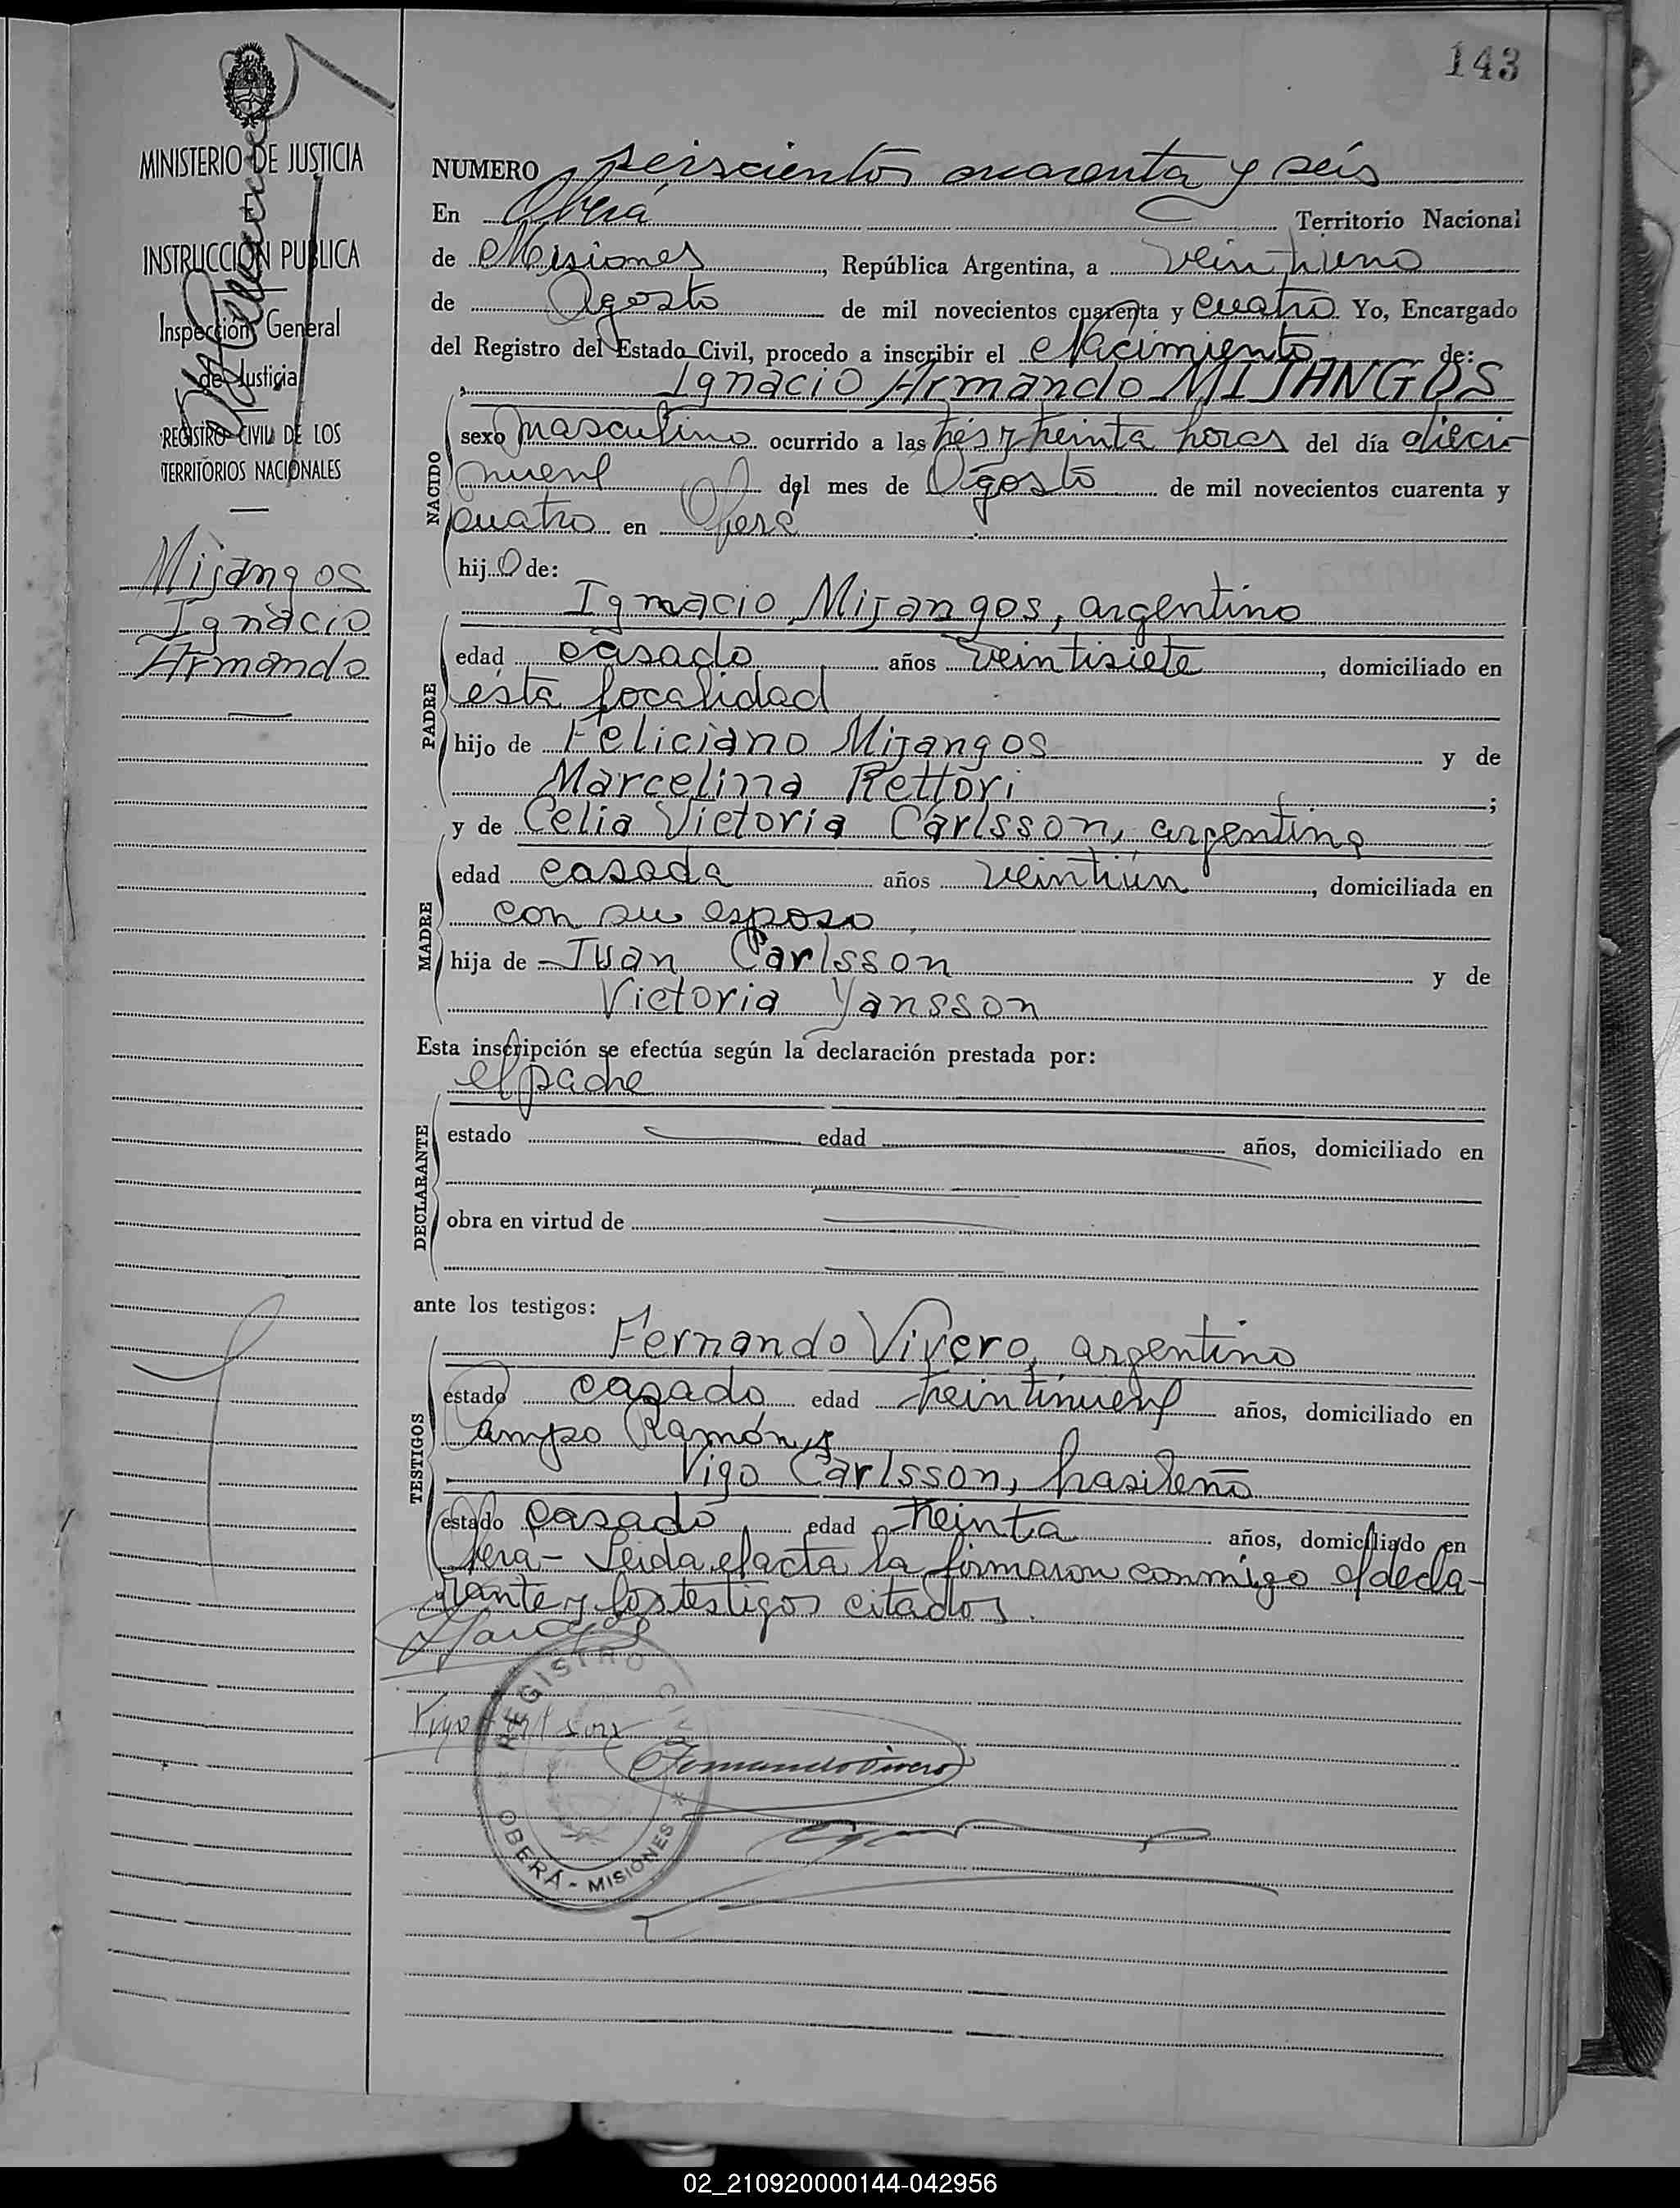 143
MINISTERIO DE JUSTICIA
INSTRUCCIÓN PUBLICA
Inspección General
de Justicia
REGISTRO CIVIL DE LOS
TERRITORIOS NACIONALES
Mijangos
Ignacio
Armando
NUMERO seiscientos cuarenta y seis
En Oberá Territorio Nacional
de Misiones, República Argentina, a veintiuno
de Agosto de mil novecientos cuarenta y cuatro. Yo, Encargado
del Registro del Estado Civil, procedo a inscribir el Nacimiento de:
Ignacio Armando MIJANGOS
NACIDO
sexo masculino ocurrido a las tres y treinta horas del día dieci-
nueve del mes de Agosto de mil novecientos cuarenta y
cuatro en Oberá
hijo de:
Ignacio Mijangos, argentino
PADRE
edad casado años veintisiete, domiciliado en
ésta localidad
hijo de Feliciano Mijangos y de
Marcelina Rettori;
y de Celia Victoria Carlsson, argentina
MADRE
edad casada años veintiún, domiciliada en
con su esposo
hija de Juan Carlsson y de
Victoria Yansson
Esta inscripción se efectúa según la declaración prestada por:
el padre
DECLARANTE
estado edad años, domiciliado en
obra en virtud de
ante los testigos:
Fernando Vivero, argentino
TESTIGOS
estado casado edad treintinueve años, domiciliado en
Campo Ramón y
Vigo Carlsson, brasileño
estado casado edad treinta años, domiciliado en
Oberá - Leida el acta la firmaron conmigo el decla-
rante y los testigos citados.
Mijangos
Vigo Carlsson
Fernando Vivero
REGISTRO CIVIL
OBERÁ - MISIONES
02_210920000144-042956